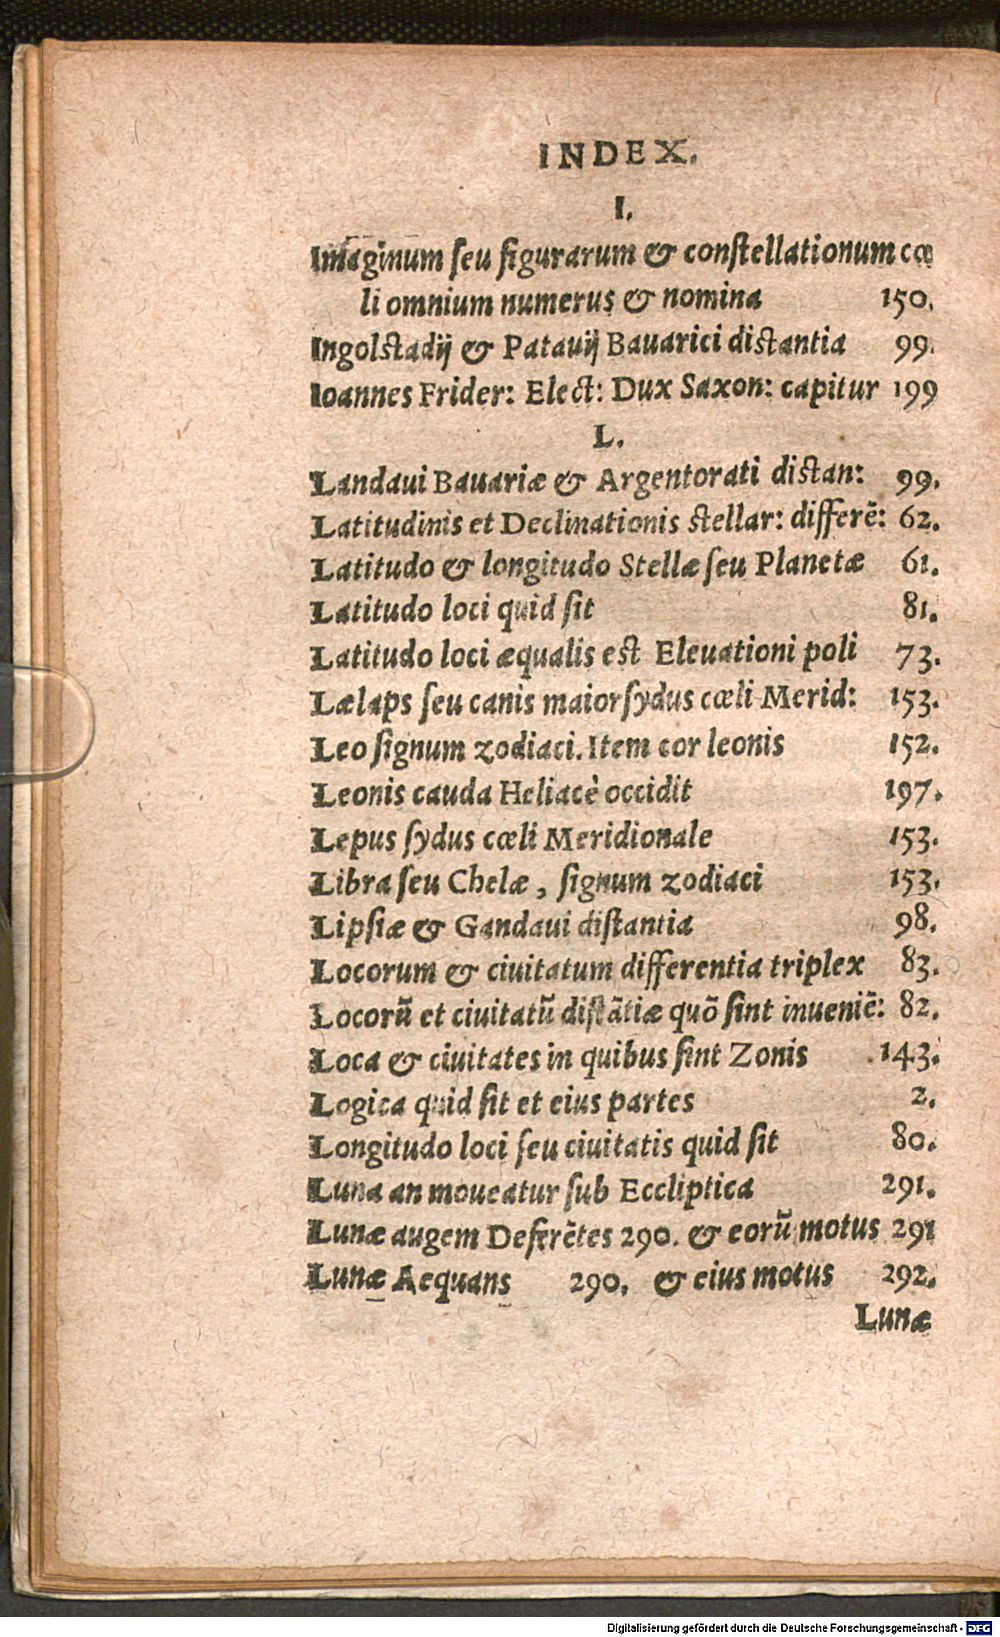 INDEX.
I.
Imaginum ſeu figurarum & conſtellationum cœ
li omnium numerus & nomina 150.
Ingolſtadij & Patauij Bauarici diſtantia 99.
Ioannes Frider: Elect: Dux Saxon: capitur 199
L.
Landaui Bauariæ & Argentorati diſtan: 99.
Latitudinis et Declinationis ſtellar: differē: 62.
Latitudo & longitudo Stellæ ſeu Planetæ 61.
Latitudo loci quid ſit 81.
Latitudo loci æqualis eſt Eleuationi poli 73.
Lælaps ſeu canis maior ſydus cœli Merid: 153.
Leo ſignum zodiaci. Item cor leonis 152.
Leonis cauda Heliacè occidit 197.
Lepus ſydus cœli Meridionale 153.
Libra ſeu Chelæ, ſignum zodiaci 153.
Lipſiæ & Gandaui diſtantia 98.
Locorum & ciuitatum differentia triplex 83.
Locorū et ciuitatū diſtātiæ quō ſint inueniē: 82.
Loca & ciuitates in quibus ſint Zonis 143.
Logica quid ſit et eius partes 2.
Longitudo loci ſeu ciuitatis quid ſit 80.
Luna an moueatur ſub Eccliptica 291.
Lunæ augem Deferētes 290. & eorū motus 291
Lunæ Aequans 290. & eius motus 292.
Lunæ
Digitalisierung gefördert durch die Deutsche Forschungsgemeinschaft - DFG